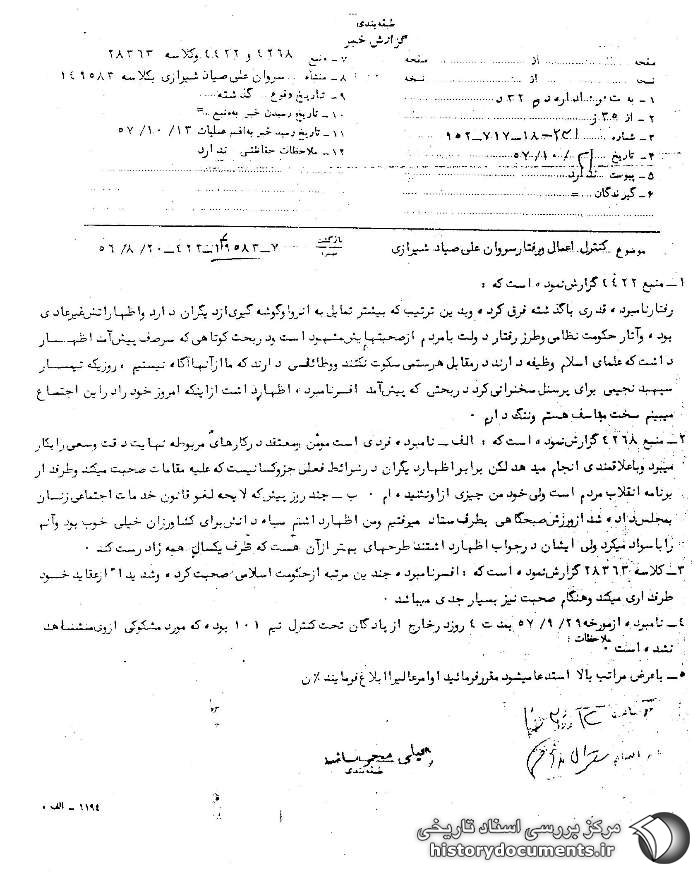 طبقه بندی
گزارش خبر
صفحه ... از ... صفحه
نسخه ... از ... نسخه
۱ـ به
۲ـ از ۳۵ ز
۳ـ شماره
۴ـ تاریخ
۵ـ پیوست ندارد
۶ـ گیرندگان =
۷ـ منبع ۴۲۶۸ و ۴۴۲۲ وکلاسه ۲۸۳۶۳
۸ـ منشاء سروان علی صیاد شیرازی بکلاسه ۱۴۹۵۸۳
۹ـ تاریخ وقوع گذشته
۱۰ـ تاریخ رسیدن خبر به منبع =
۱۱ـ تاریخ رسید خبر به اقسم عملیات ۵۷/۱۰/۱۳
۱۲ـ ملاحظات حفاظتی ندارد
موضوع : کنترل اعمال و رفتار سروان علی صیاد شیرازی بازگشت ۷ـ۱۴۹۵۸۳ـ۴۲۲ـ۵۶/۸/۲۰
۱ـ منبع ۴۴۲۲ گزارش نموده است که :
رفتار نامبرده قدری باگذشته فرق کرده وبدین ترتیب که بیشتر تمایل به انزوا وگوشه گیری ازدیگران دارد واظهاراتش غیرعادی
بوده وآثار حکومت نظامی وطرز رفتار دولت بامردم ازصحبتهایش مشهود است ودربحث کوتاهی که سرصف پیش آمد اظهار
داشت که علمای اسلام وظیفه دارند درمقابل هرستمی سکوت نکنند ووظائفی دارند که ما ازآنها آگاه نیستیم ، روزیکه تیمسار
سپهبد نجیمی برای پرسنل سخنرانی کرد دربحثی که پیش آمد افسرنامبرده اظهارداشت ازاینکه امروز خود را دراین اجتماع
میبینم سخت متاسف هستم وننگ دارم .
۲ـ منبع ۴۲۶۸ گزارش نموده است که : الف ـ نامبرده فردی است مومن ومعتقد درکارهای مربوطه نهایت دقت وسعی رابکار
میبرد وباعلاقمندی انجام میدهد لکن برابراظهاردیگران درشرائط فعلی جزوکسانیست که علیه مقامات صحبت میکند وطرفدار
برنامه انقلاب مردم است ولی خود من چیزی ازاونشنیده ام . ب ـ چند روز پیش که لایحه لغو قانون خدمات اجتماعی زنان
بمجلس داده شد ازورزش صبحگاهی بطرف ستاد میرفتیم ومن اظهارداشتم سپاه دانش برای کشاورزان خیلی خوب بود وآنها
راباسواد میکرد ولی ایشان درجواب اظهارداشتند طرحهای بهتر ازآن هست که ظرف یکسال همه را درست کند .
۳ـ کلاسه ۲۸۳۶۳ گزارش نموده است که : افسرنامبرده چندین مرتبه ازحکومت اسلامی صحبت کرده وشدیدا ازعقاید خود
طرفداری میکند وهنگام صحبت نیز بسیار جدی میباشد .
۴ـ نامبرده ازمورخه ۵۷/۹/۲۹ بمدت ۴ روز درخارج ازپادگان تحت کنترل تیم ۱۰۱ بوده که مورد مشکوکی ازوی مشاهده
نشده است .
ملاحظات :
۵ـ باعرض مراتب بالا استدعا میشود مقررفرمائید اوامرعالی را ابلاغ فرمایند ٪ن
خیلی محرمانه
طبقه بندی
۱۱۹۴ ـ الف
مرکز بررسی اسناد تاریخی
historydocuments.ir